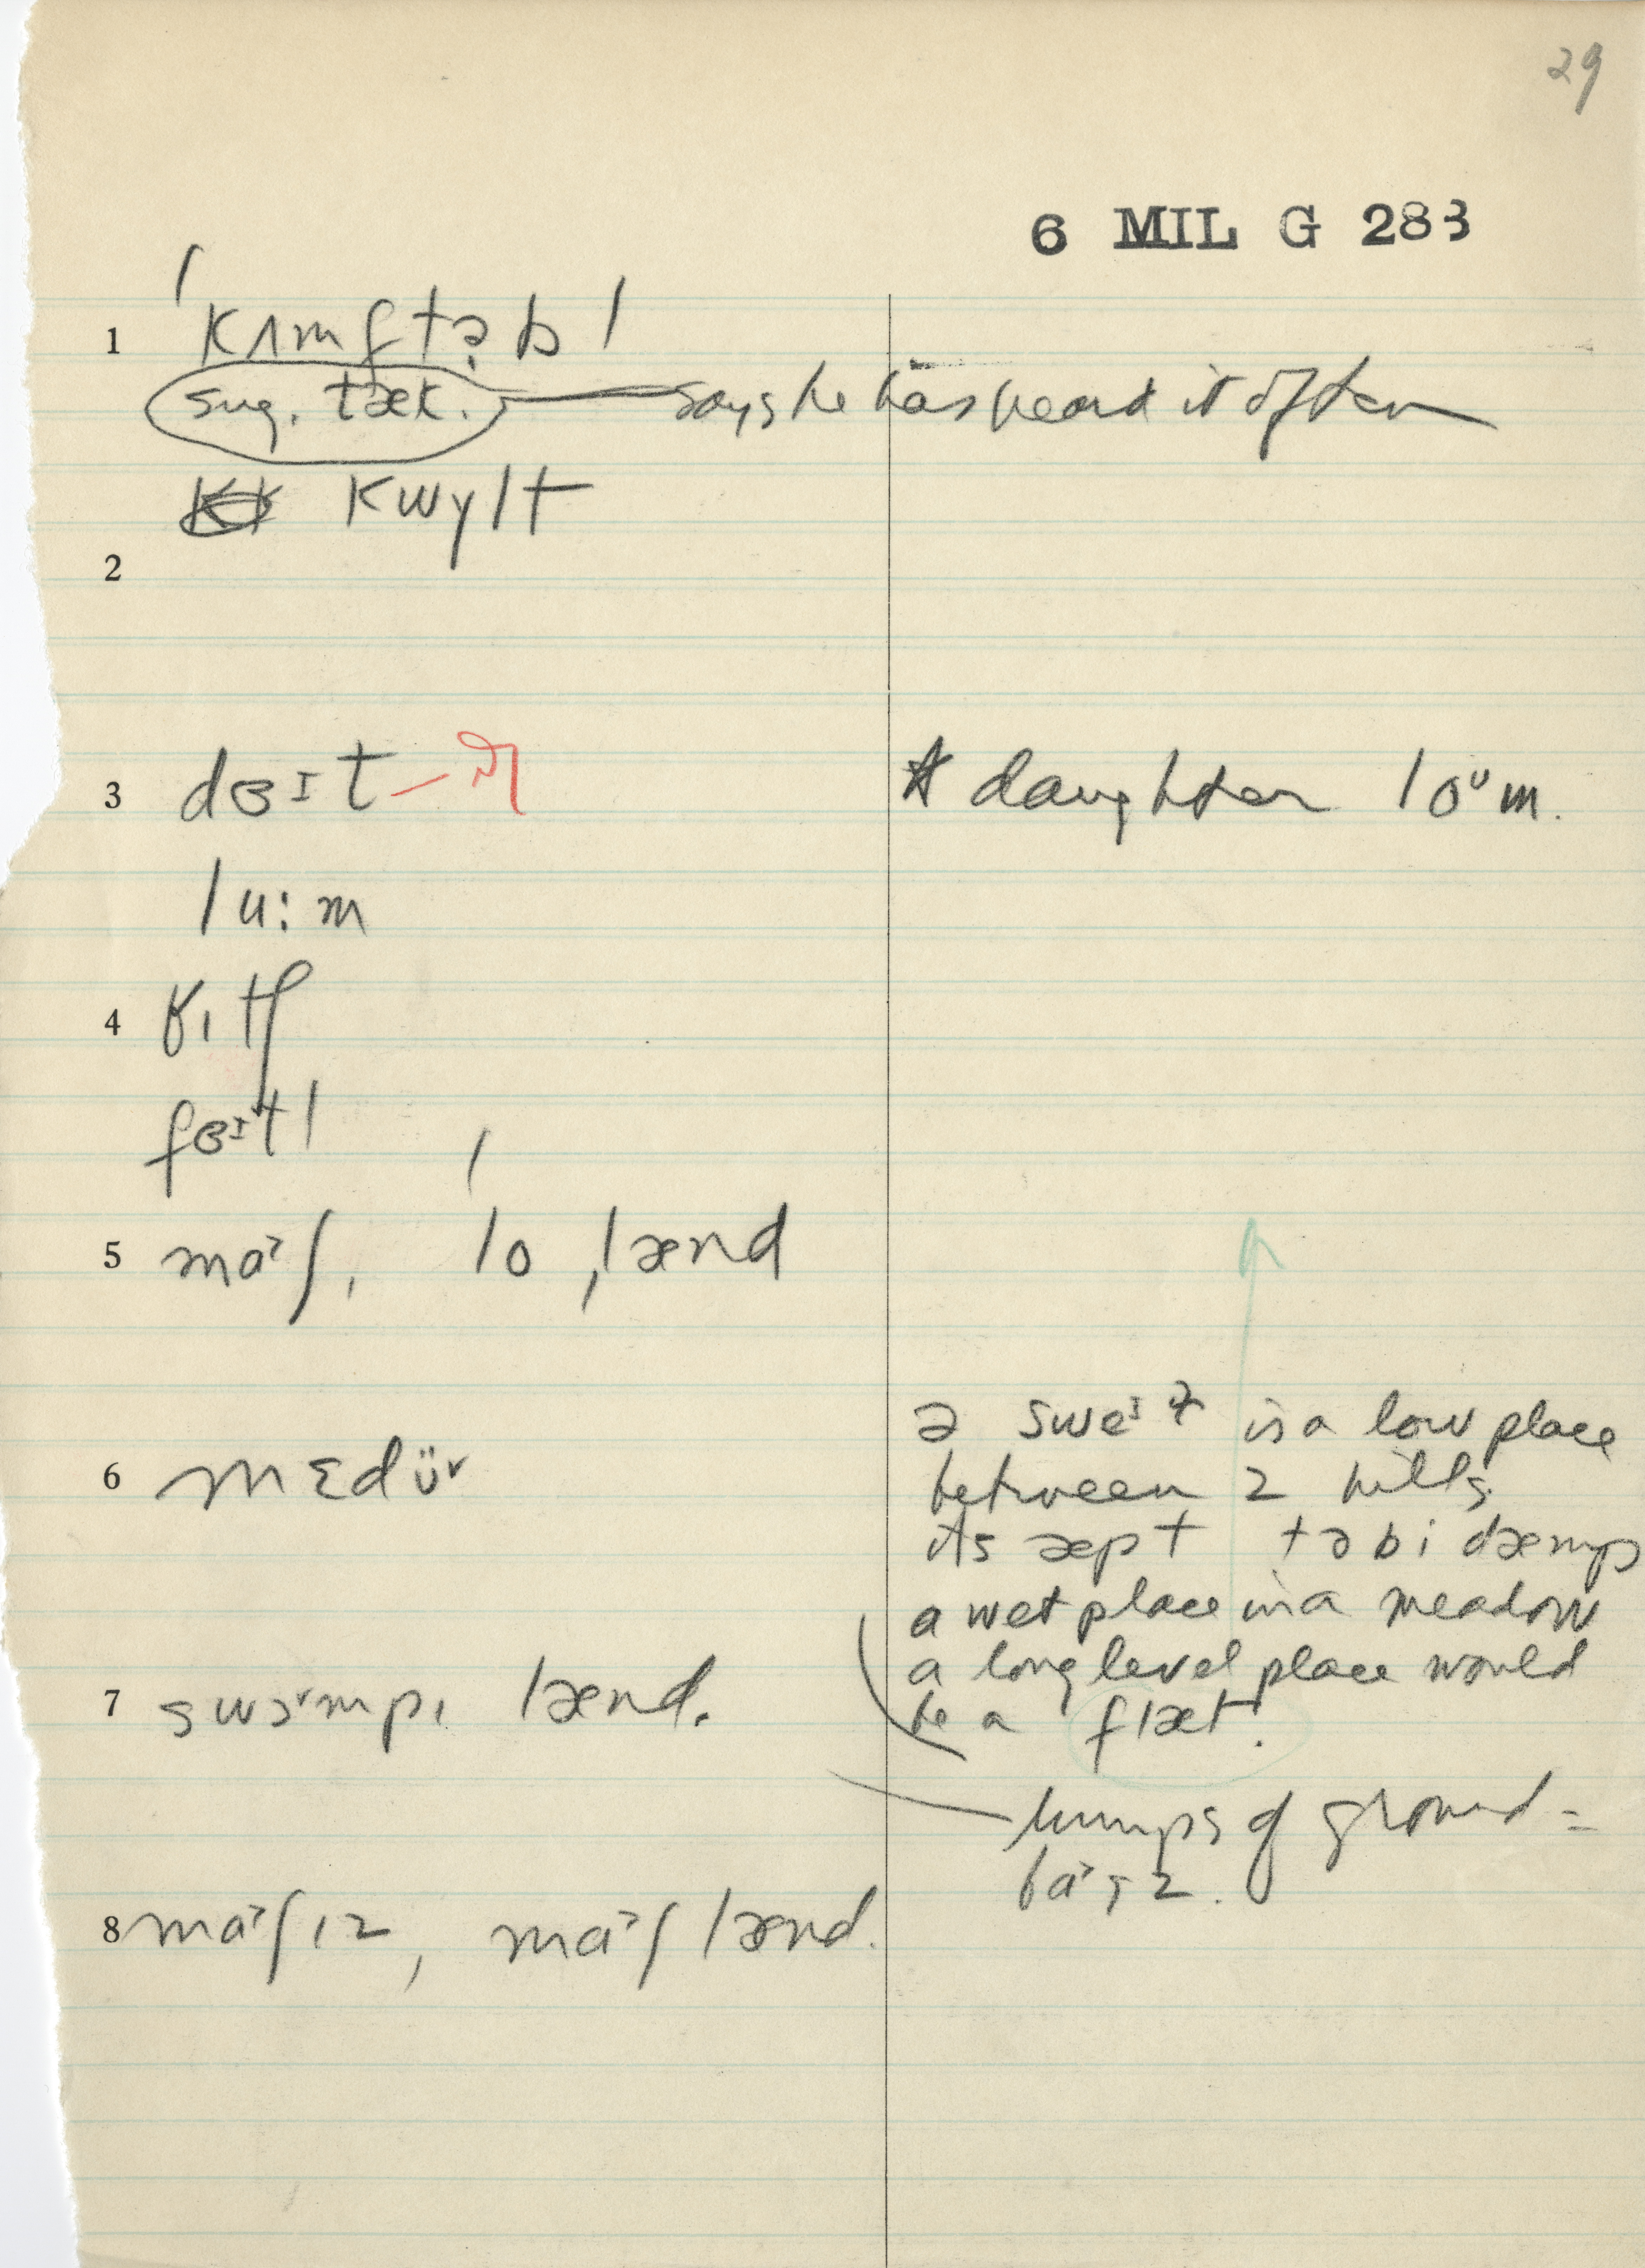 29
6 MIL G 283
1 ˈkʌmftəbl
sug. tæk. says he has heard it often
kwɣlt
2
3 dɜɪt daughter loᵘm.
lu:m
4
fɜɪtl
5 maᵊʃ, ˈlo ˌlænd
ə sweɪ is a low place
between 2 hills
6 mɛdüᵛ
its æpt tə bi dæmp
a wet place in a meadow
a long level place would
7 swɔᵛmpɪ lænd.
be a flæt.
humps of ground =
8 maᵊʃɪz, maᵊʃ lænd.